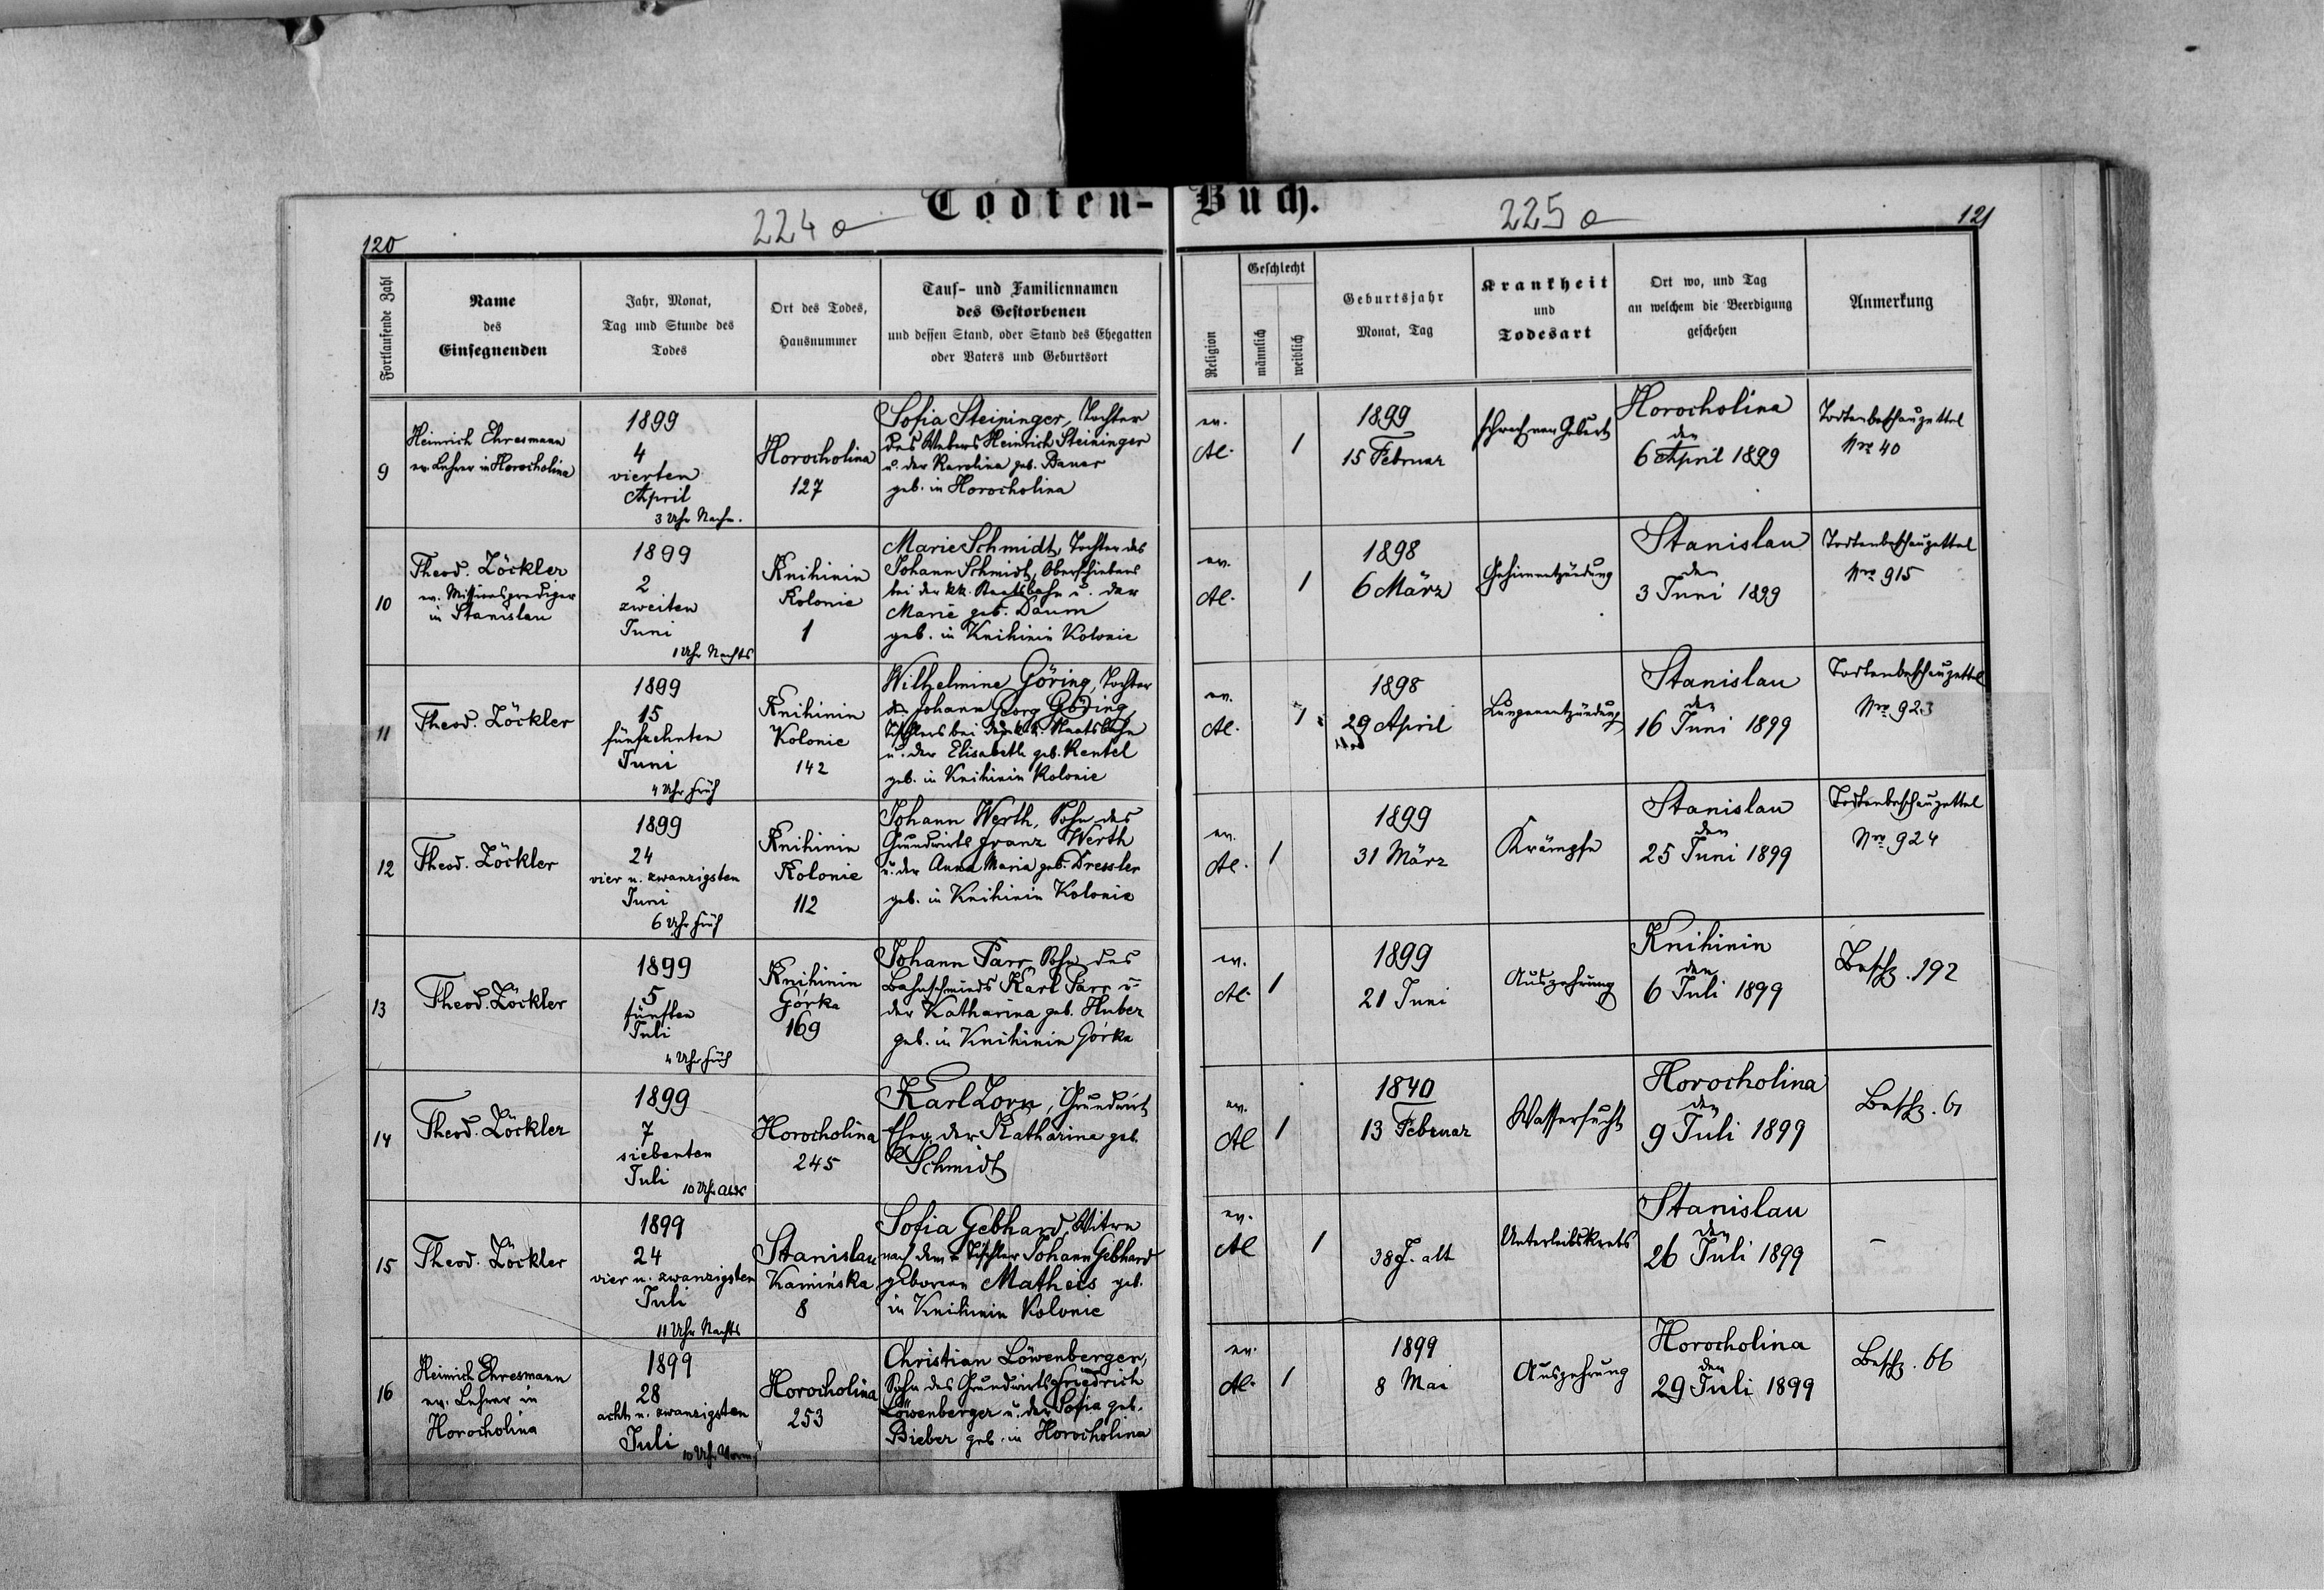 Todten-Buch.
224a
225a
120
121
Fortlaufende Zahl
Name
des
Einsegnenden
Jahr, Monat,
Tag und Stunde des
Todes
Ort des Todes,
Hausnummer
Tauf- und Familiennamen
des Gestorbenen
und dessen Stand, oder Stand des Ehegatten
oder Vaters und Geburtsort
Religion
Geschlecht
männlich
weiblich
Geburtsjahr
Monat, Tag
Krankheit
und
Todesart
Ort wo, und Tag
an welchem die Beerdigung
geschehen
Anmerkung
9
Heinrich Ehresmann
ev. Lehrer in Horocholina
1899
4
vierten
April
3 Uhr Nachm.
Horocholina
127
Sofia Steininger, Tochter
des Webers Heinrich Steininger
u. der Karolina geb. Bauer
geb. in Horocholina
ev.
AC.
1
1899
15 Februar
schwach von Geburt
Horocholina
den
6 April 1899
Todtenbeschauzettel
Nro 40
10
Theod. Zöckler
ev. Missionsprediger
in Stanislau
1899
2
zweiten
Juni
1 Uhr Nachts
Knihinin
Kolonie
1
Marie Schmidt, Tochter des
Johann Schmidt, Oberschiebers
bei der kk. Staatsbahn u. der
Marie geb. Daum
geb. in Knihinin Kolonie
ev.
AC.
1
1898
6 März
Gehirnentzündung
Stanislau
den
3 Juni 1899
Todtenbeschauzettel
Nro 915
11
Theod. Zöckler
1899
15
fünfzehnten
Juni
4 Uhr früh
Knihinin
Kolonie
142
Wilhelmine Göring, Tochter
des Johann Georg Göring,
Tischlers bei der k.k. Staatsbahn
u. der Elisabeth geb. Rentel
geb. in Knihinin Kolonie
ev.
AC.
1
1898
29 April
Lungenentzündung
Stanislau
den
16 Juni 1899
Todtenbeschauzettel
Nro 923
12
Theod. Zöckler
1899
24
vier u. zwanzigsten
Juni
6 Uhr früh
Knihinin
Kolonie
112
Johann Werth, Sohn des
Grundwirts Franz Werth
u. der Anna Maria geb. Dressler
geb. in Knihinin Kolonie
ev.
AC.
1
1899
31 März
Krämpfe
Stanislau
den
25 Juni 1899
Todtenbeschauzettel
Nro 924
13
Theod. Zöckler
1899
5
fünften
Juli
4 Uhr früh
Knihinin
Górka
169
Johann Parr Sohn des
Bahnschmieds Karl Parr u.
der Katharina geb. Huber
geb. in Knihinin Górka
ev.
AC.
1
1899
21 Juni
Auszehrung
Knihinin
den
6 Juli 1899
Beschz. 192
14
Theod. Zöckler
1899
7
siebenten
Juli
10 Uhr Abds
Horocholina
245
Karl Zorn, Grundwirt
Eheg. der Katharine geb.
Schmidt
ev.
AC
1
1840
13 Februar
Wassersucht
Horocholina
den
9 Juli 1899
Beschz. 61
15
Theod. Zöckler
1899
24
vier u. zwanzigsten
Juli
11 Uhr Nachts
Stanislau
Kamińska
8
Sofia Gebhard, Witwe
nach dem Tischler Johann Gebhard
geborene Matheis geb.
in Knihinin Kolonie
ev.
AC
1
38 J. alt
Unterleibskrebs
Stanislau
den
26 Juli 1899
–
16
Heinrich Ehresmann
ev. Lehrer in
Horocholina
1899
28
acht u. zwanzigsten
Juli
10 Uhr Vorm.
Horocholina
253
Christian Löwenberger,
Sohn des Grundwirts Friedrich
Löwenberger u. der Sofia geb.
Bieber geb. in Horocholina
ev.
AC.
1
1899
8 Mai
Auszehrung
Horocholina
den
29 Juli 1899
Beschz. 66